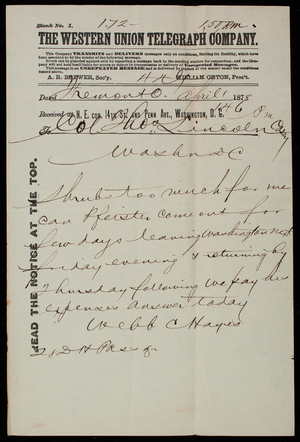 Blank No. 1.
172-
150 pm
THE WESTERN UNION TELEGRAPH COMPANY.
This Company TRANSMITS and DELIVERS messages only on conditions, limiting its liability, which have
been assented to by the sender of the following message.
A. R. BREWER, Sec'y.
WILLIAM ORTON, Pres't.
Dated Fremont O. April 1 1878
Received at N. E. COR. 14TH ST. AND PENN AVE., WASHINGTON, D. C. 146 Pm
To Col Thos Lincoln Casey
Washn DC
Shrubs too much for me
can Pfeister come out for
few days leaving Washington next
Sunday evening & returning by
Thursday following we pay his
expenses answer today
Webb C Hayes
28 D H
READ THE NOTICE AT THE TOP.